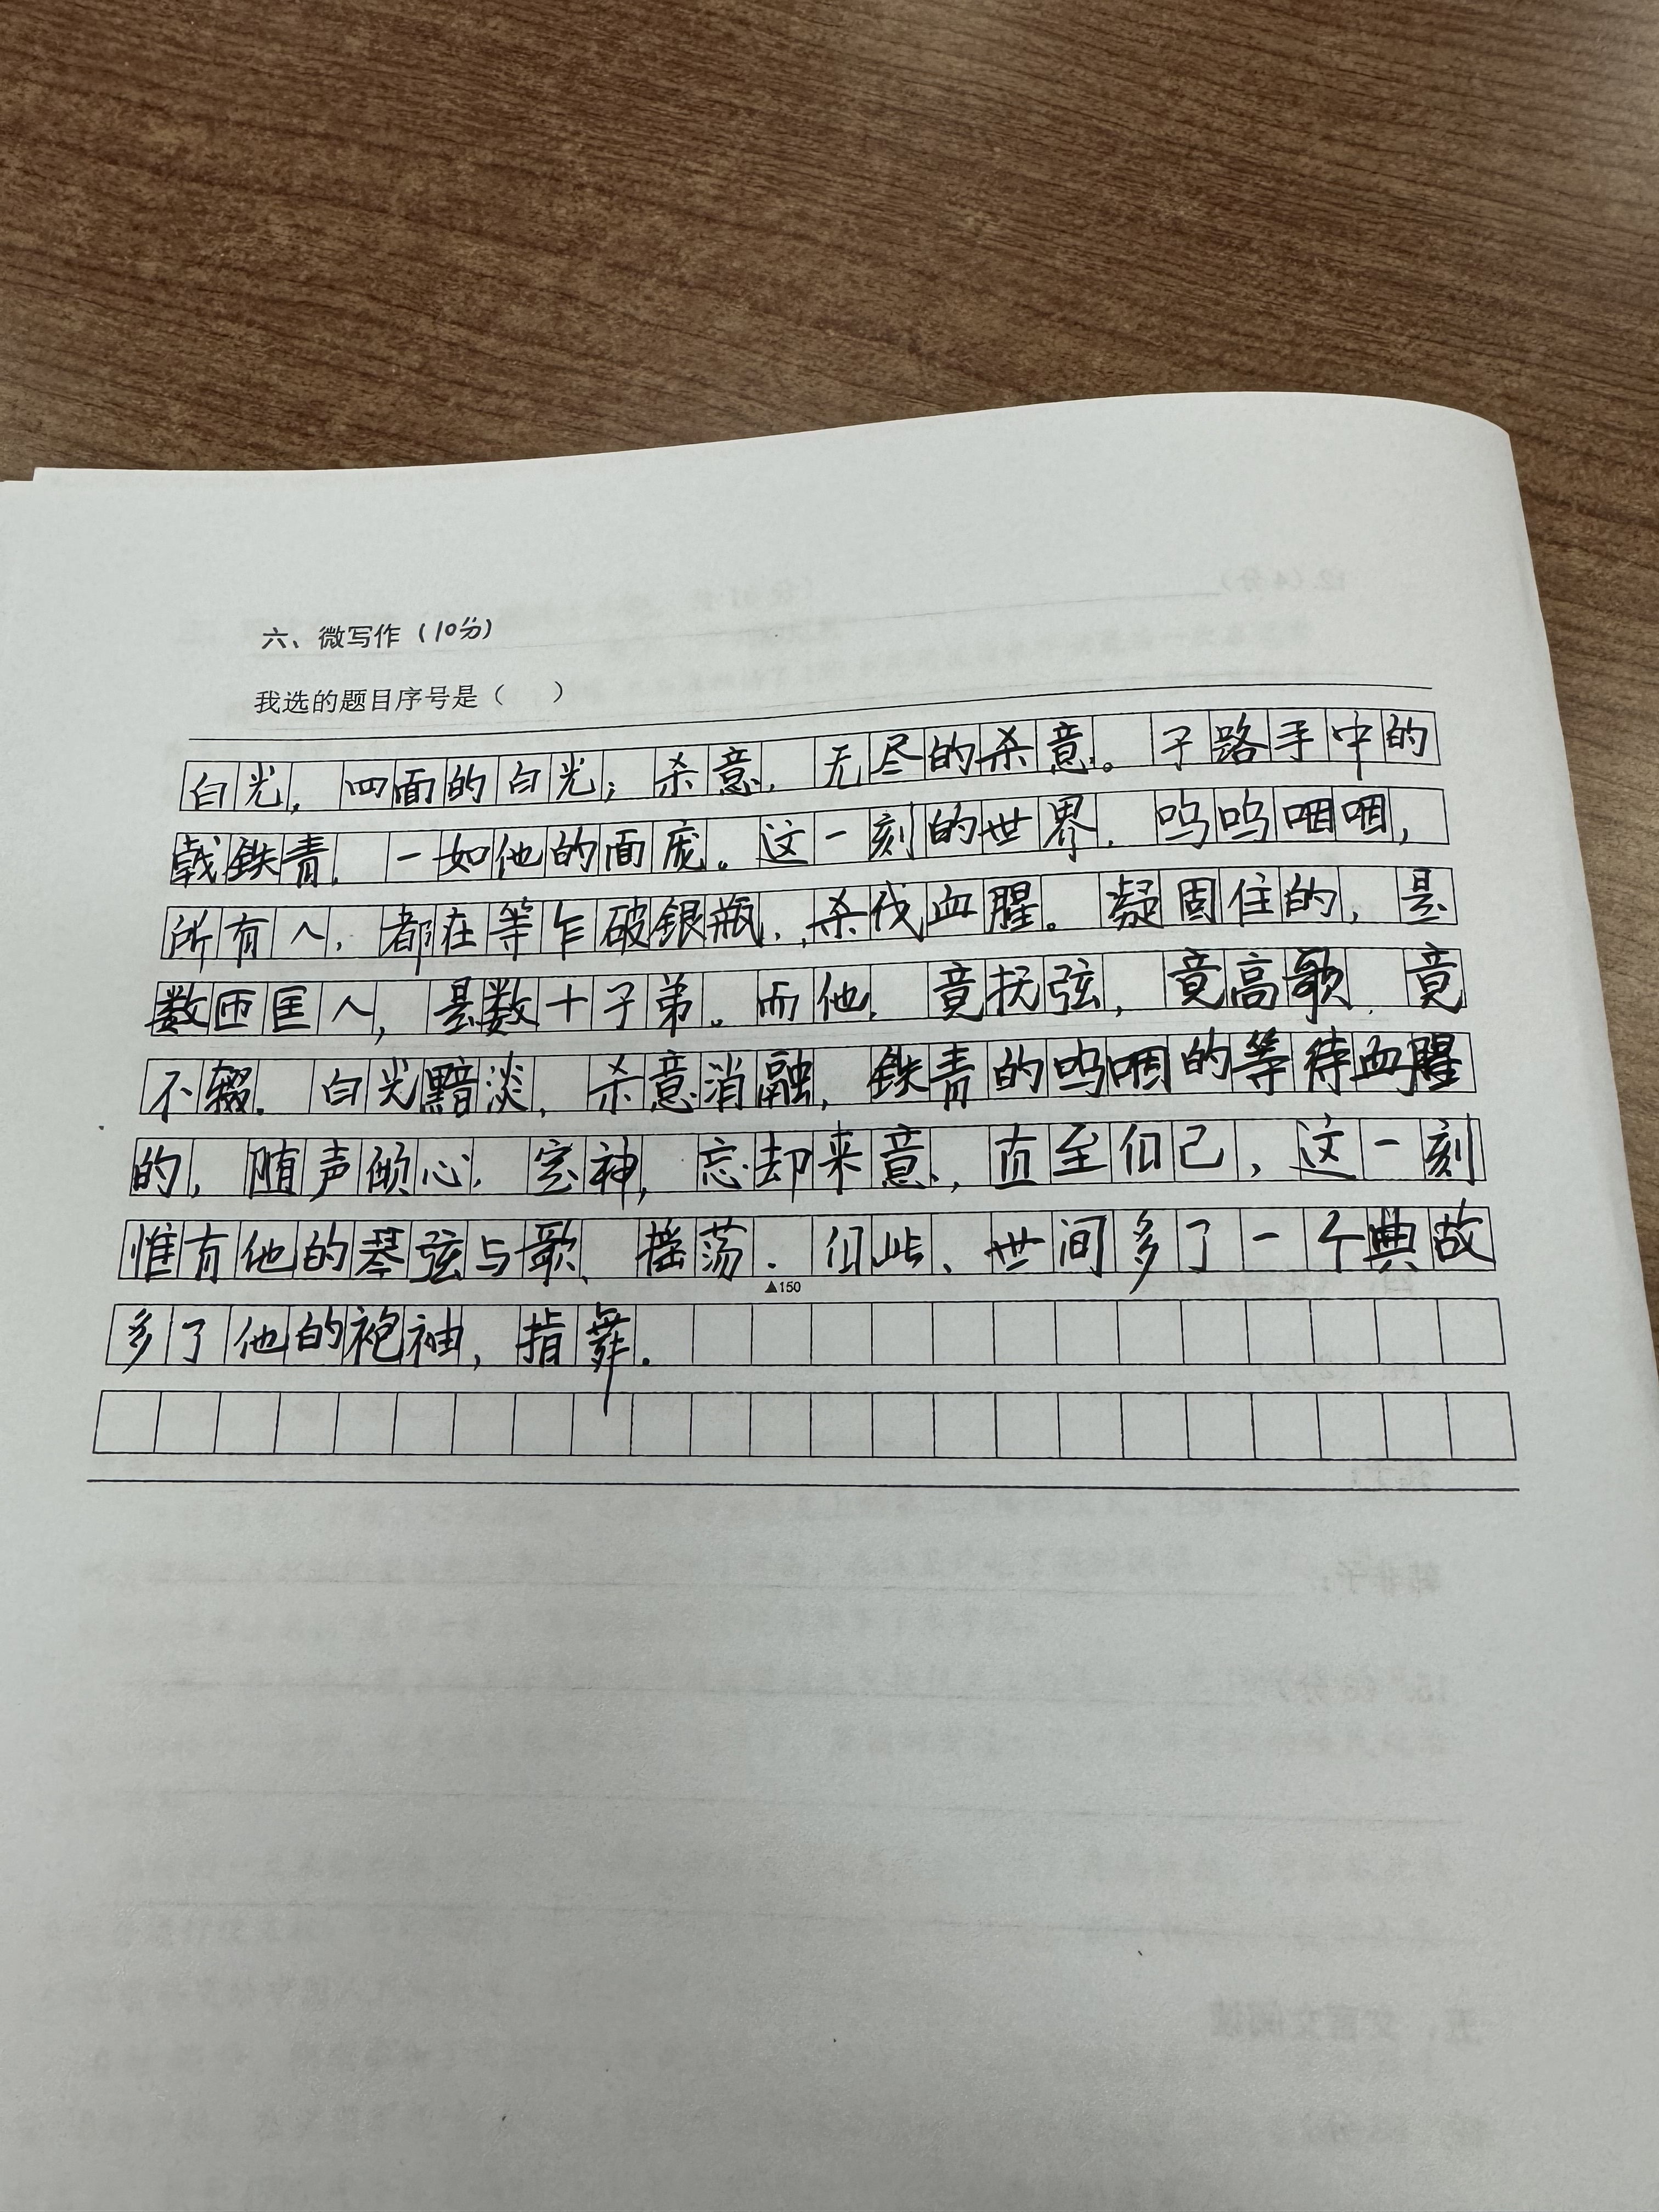 六、微写作（10分）
我选的题目序号是（ ）
白光，四面的白光；杀意，无尽的杀意。子路手中的
戟鉄青，一如他的面庞。这一刻的世界，呜呜咽咽，
所有人，都在等乍破银瓶，杀伐血腥。凝固住的，是
数匝匡人，是数十子弟。而他，竟抚弦，竟高歌，竟
不辍。白光黯淡，杀意消融，鉄青的呜咽的等待血腥
的，随声倾心，定神，忘却来意，直至自己，这一刻
惟有他的琴弦与歌、摇荡。自此、世间多了一个典故
▲150
多了他的袍袖，指舞。